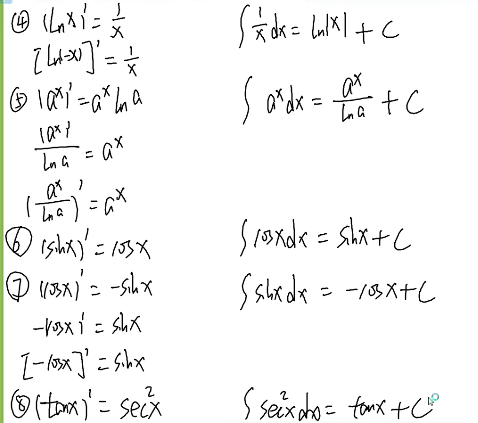 ④ (lnx)' = 1/x    ∫ 1/x dx = ln|x| + C
[ln(-x)]' = 1/x
⑤ (a^x)' = a^x ln a    ∫ a^x dx = a^x/ln a + C
(a^x)'/ln a = a^x
(a^x/ln a)' = a^x
⑥ (sinx)' = cosx    ∫ cosx dx = sinx + C
⑦ (cosx)' = -sinx    ∫ sinx dx = -cosx + C
-(cosx)' = sinx
[-cosx]' = sinx
⑧ (tanx)' = sec²x    ∫ sec²x dx = tanx + C